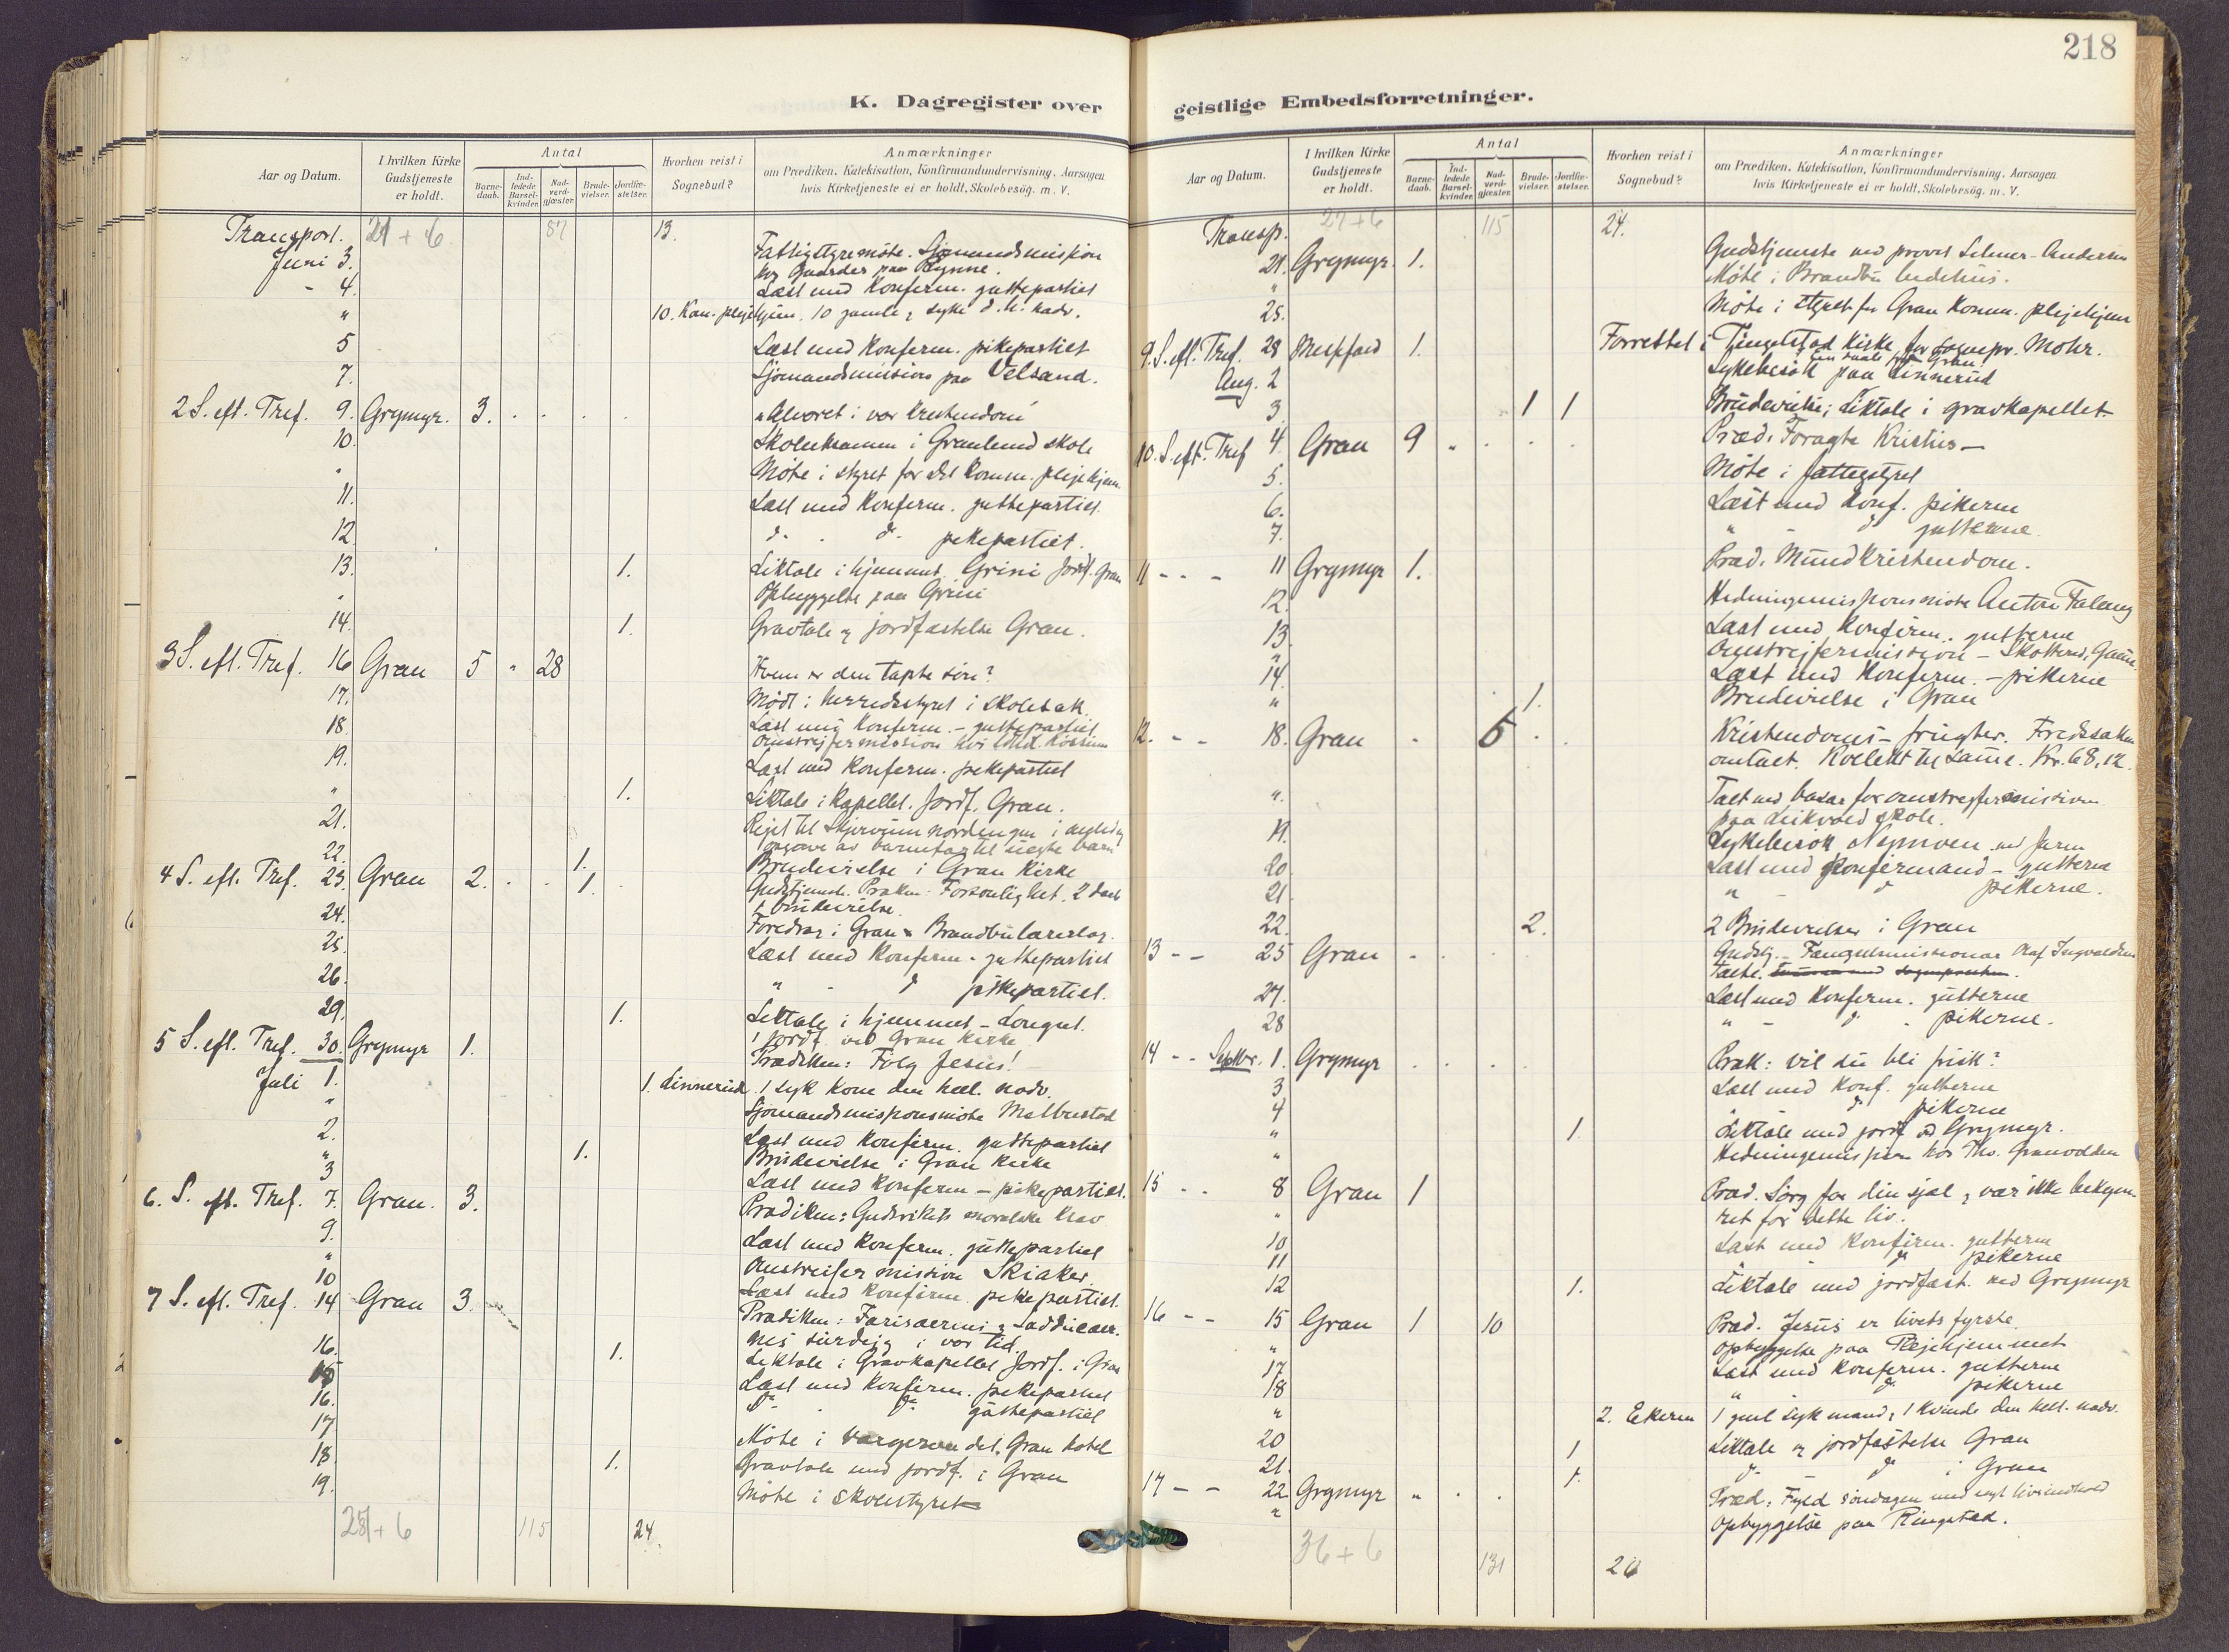 K. Dagregister over
Aar og Datum.
I hvilken Kirke Gudstjeneste er holdt.
Antal
Barne-daab.
Ind-ledede Barsel-kvinder.
Nad-verd-gjæster.
Brude-vielser.
Jordfæ-stelser.
Hvorhen reist i Sognebud?
Anmærkninger
om Prædiken, Katekisation, Konfirmandundervisning, Aarsagen
hvis Kirketjeneste ei er holdt, Skolebesög. m. v.
Transport. 21 + 6 87 13.
Juni 3. Fattigstyremöte. Sjömandsmission
hos paa Rynne.
- 4. Læst med Konferm. guttepartiet
" 10. Kom. plejehjem. 10 gamle & syke d. h. nadv.
5 Læst med Konferm. pikepartiet
7. Sjömandsmission paa Velsand.
2 S. eft. Tref. 9. Grymyr. 3. . . . . "Alvoret i vor Kristendom"
10. Skoleeksamen i Granlund skole
" Möte i styret for det Komm. plejehjem.
11. Læst med Konferm. guttepartiet.
12. do. do. pikepartiet.
13. 1. Liktale i hjemmet Grini Jordf. Gran
" Opbyggelse paa Grini
14. 1. Gravtale & jordfæstelse Gran.
3 S. eft. Tref. 16 Gran 5 " 28 Hvem er den tapte sön?
17. Mödt i herredsstyret i skolesak.
18. Læst med Konferm. - guttepartiet
Omstreifermission hos
19. Læst med Konferm. pikepartiet
" 1. Liktale i Kapellet. Jordf. Gran.
21. Rejst til nordengen i anledn
av barnefar til uegte barn
22. 1. Brudevielse i Gran Kirke
4 S. eft. Tref. 23. Gran 2. . . 1. . Gudstjenest. Præken: Forsonlighet. 2 daab
1 brudevielse.
24. Foredrag i Gran & Brandbu lærerlag.
25. Læst med Konferm. - guttepartiet
26. " - do pikepartiet.
29. 1. Liktale i hjemmet - Longset.
1 jordf. ved Gran Kirke
5 S. eft. Tref. 30. Grymyr 1. Prædiken: Fölg Jesus!
Juli 1. 1. Linnerud. 1 syk kone den hell. nadv.
" Sjömandsmissionsmöte Melbustad
2. Læst med Konferm. guttepartiet
" 1. Brudevielse i Gran Kirke
3 Læst med Konferm - pikepartiet.
6. S. eft. Tref. 7. Gran. 3. Prædiken: Gudsrikets moralske Krav
9. Læst med Konferm. guttepartiet
" Omstreifermission Skiaker.
10 Læst med Konferm. pikepartiet.
7 S. eft. Tref. 14 Gran 3. Prædiken: Farisæernes & Sadducæer-
nes surdejg i vor tid.
16. 1. Liktale i Gravkapellet Jordf. i Gran
15 Læst med Konferm. pikepartiet
16. do - do guttepartiet
17 Möte i vergeraadet, Gran hotel
18. 1. Gravtale med jordf. i Gran
19. Möte i skolestyret
27 + 6 115 24.
218
geistlige Embedsforretninger.
Aar og Datum.
I hvilken Kirke Gudstjeneste er holdt.
Antal
Barne-daab.
Ind-ledede Barsel-kvinder.
Nad-verd-gjæster.
Brude-vielser.
Jordfæ-stelser.
Hvorhen reist i Sognebud?
Anmærkninger
om Prædiken, Katekisation, Konfirmandundervisning, Aarsagen
hvis Kirketjeneste ei er holdt, Skolebesög. m. v.
Transp. 27 + 6 115 24.
21. Grymyr. 1. Gudstjeneste ved provst Selmer-Andersen
" Möte i Brandbu bedehus.
25. Möte i styret for Gran Komm. plejehjem
9. S. eft. Tref. 28 1. Forrettet i Tingelstad Kirke for sognepr. Mohr.
Aug. 2 Sykebesök paa Linnerud
3. 1 1 Brudevielse; Liktale i gravkapellet.
10. S. eft. Tref 4. Gran 9 " . . . Præd. Foragte Kristus -
5. Möte i fattigstyret
6. Læst med Konf. pikerne
7. " do gutterne
11 - - - 11 Grymyr 1. Præd. Mundkristendom.
12. Hedningemissionsmöte Anton Falang
13. Læst med Konferm. gutterne
" Omstrejfermission -
14. Læst med Konferm. - pikerne
" 1. Brudevielse i Gran
12. - - 18. Gran . 5 . . Kristendoms-frugter. Fredssaken
omtalt. Kollekt til samme. Kr. 68,12.
". Talt ved basar for omstrejfermissionen
paa Leikvold skole.
19. Sykebesök Nymoen ved Jaren
20 Læst med Konfirmand - gutterne
21 " - do pikerne.
22. 2. 2 Brudevielser i Gran
13 - - 25 Gran . . . . Gudstj. - Fængselsmissionær Olaf Ingvaldsen
talte.
27. Læst med Konferm. gutterne
28 " - do - pikerne.
14 - - Septbr. 1. Grymyr . . . . Præk: vil du bli frisk?
3 Læst med Konf. gutterne
4 " do pikerne
" 1. Liktale med jordf. ved Grymyr.
" Hedningemission hos Th. Granvolden
15 - - 8 Gran 1 Præd. Sörg for din sjæl & vær ikke bekym-
" ret for dette liv.
10 Læst med Konferm. gutterne
11 do pikerne
12 1. Liktale med jordfæst. ved Grymyr
16 - - 15 Gran 1 10 Præd. Jesus er livets fyrste
" Opbyggelse paa Plejehjemmet
17 Læst med Konferm. gutterne
18 " do pikerne
" 2. Ekeren 1 gml syk mand, 1 kvinde den hell. nadv.
20 1 Liktale & jordfæstelse Gran
21. 1. do do i Gran
17 - - 22 Grymyr " . . Præd: Fyld söndagen med nyt livsindhold
" Opbyggelse paa Ringstad.
36 + 6 131 26